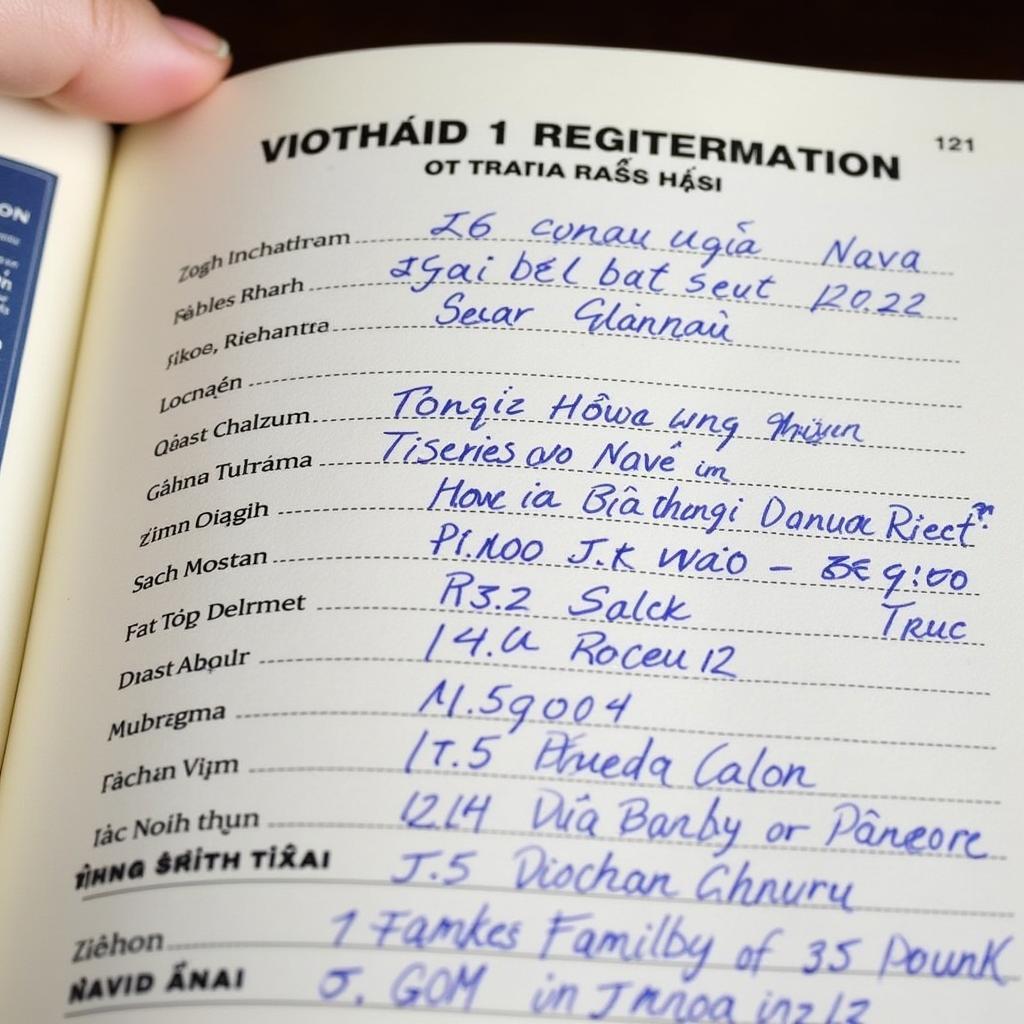 VIOTHÁID 1 REGITERMATION
121
OT TRATIA RAẤS HẬSI
ON
Zogh Inchatīram I6 conau ugía Nava
Fábles Rharh bél bat seut 120.22
Riehantra Secar Glannaù
Locnạén
Qáast Chalzum Tongiz Hôwa wng
Gáhna Tulráma Tiseries ovo Navê im
Zimn Oiạgih Howe ia Bîa thengi Danuoc Riect
Sach Mostan J.K wáo –
Fat Tóp Delrmet R3.2 Salck Truc
Dıast Abọulr 14.u Roceu 12
Mubrzgma M.59004
Fáchan Vijm 1T.5 Calon
Iác Noih thụn 1214 Día Banby or Pâneore
SRITH TIXAI J.5 Diochan Ghnuru
Ziêhon 1 Famkes Familby of 35 Pounk
NAVID ÂNAI GOM in